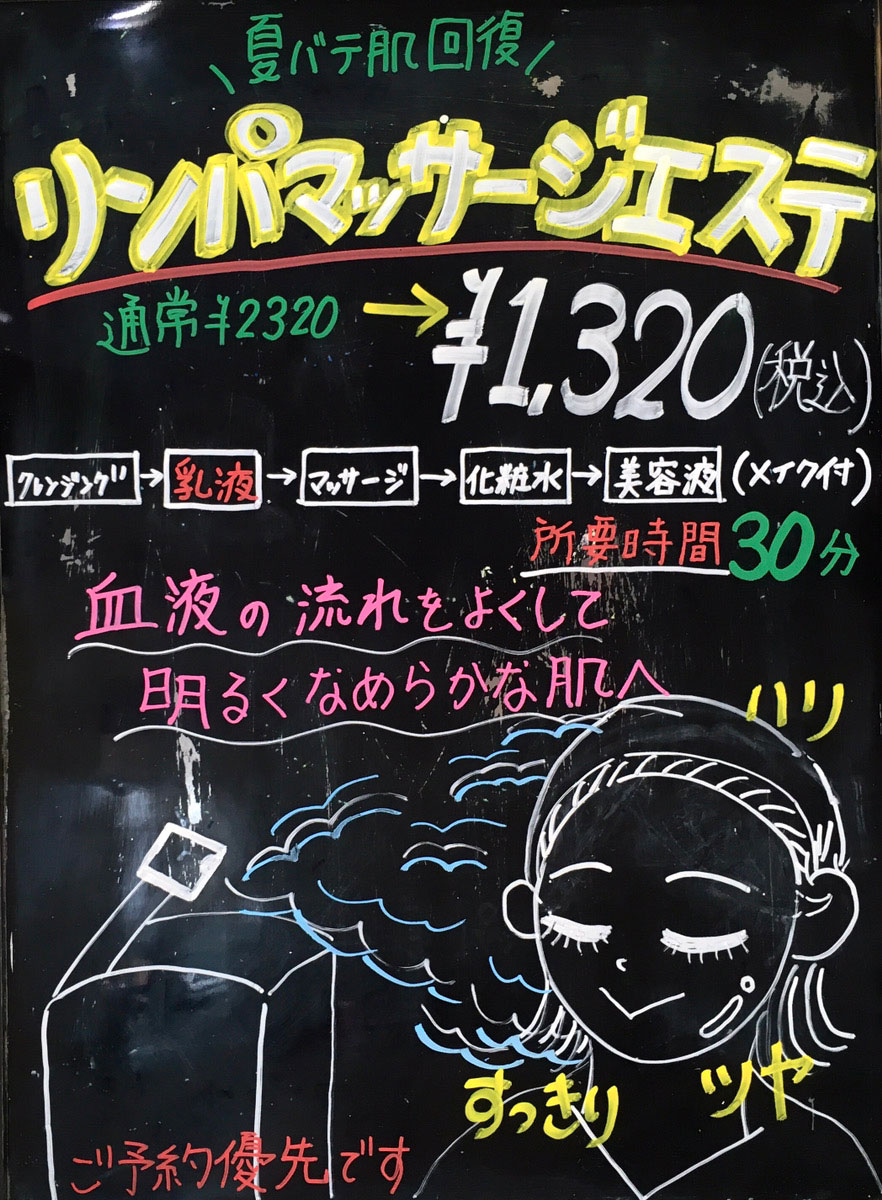 \夏バテ肌回復/
リンパマッサージエステ
通常¥2320→¥1,320(税込)
クレンジング→乳液→マッサージ→化粧水→美容液(メイク付)
所要時間30分
血液の流れをよくして
明るくなめらかな肌へ
ハリ
すっきり
ツヤ
ご予約優先です